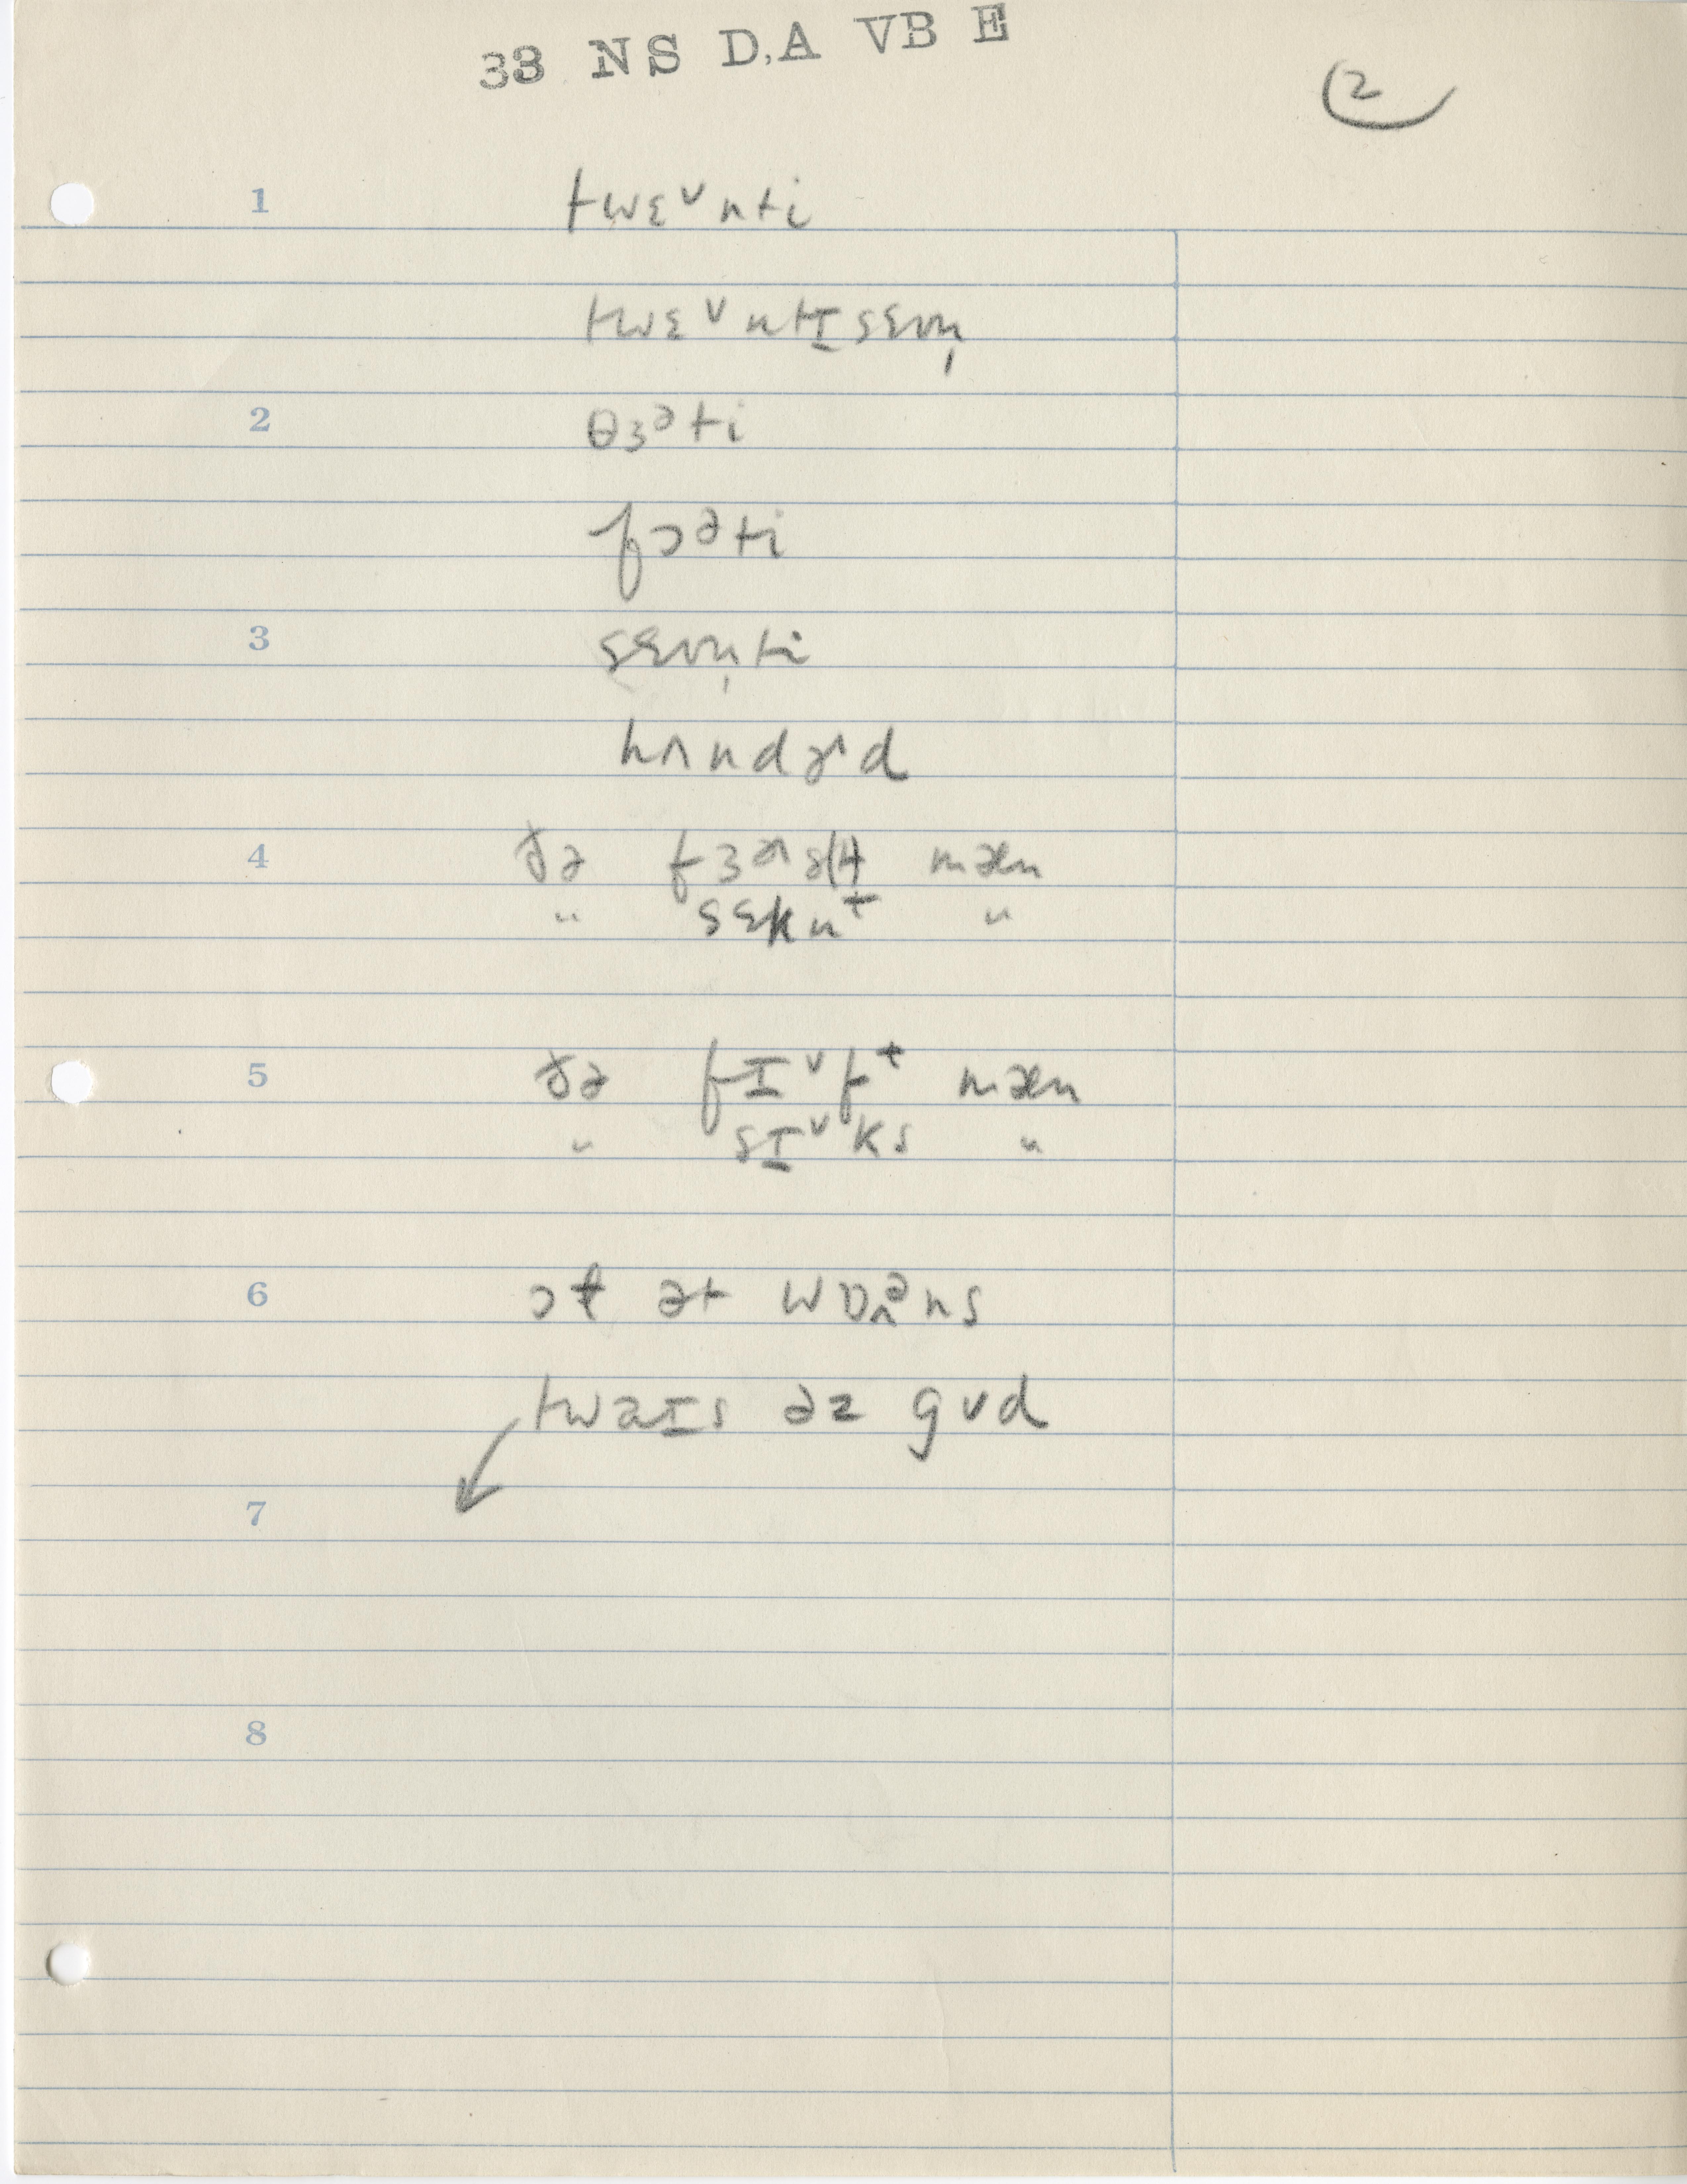 33 NS D,A VB E
2
1 twɛ˅nti
twɛ˅ntɪsɛvn̩
2 θɜᵊti
fɔᵊti
3 sɛvn̩ti
hʌndɚ^d
4 ðə mæn
" sɛkn̩ᵗ "
5 ðə fɪ˅fᵗ mæn
" sɪ˅ks "
6 ɔɫ ət wɒᵊns
twaɪs əz gʊd
7
8